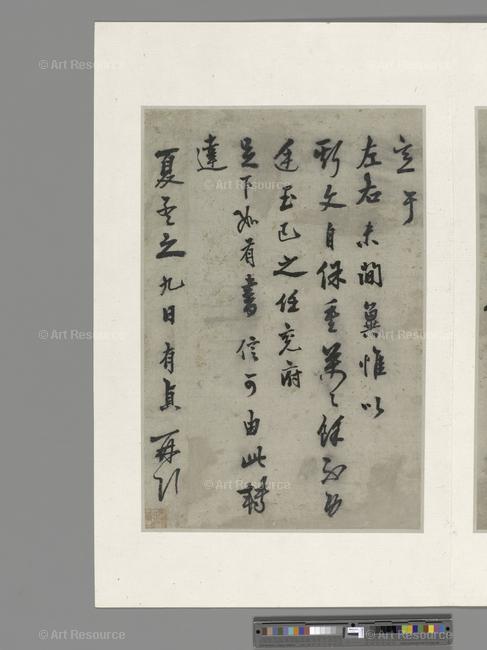 立于
左右未間冀惟以
斯文自保重萬々餘不
至已之任兗府
足下如有書信可由此轉
達
夏孟之九日有貞再
© Art Resource
© Art Resource
© Art Resource
© Art Resource
© Art Resource
© Art Resource
© Art Resource
© Art Resource
© Art Resource